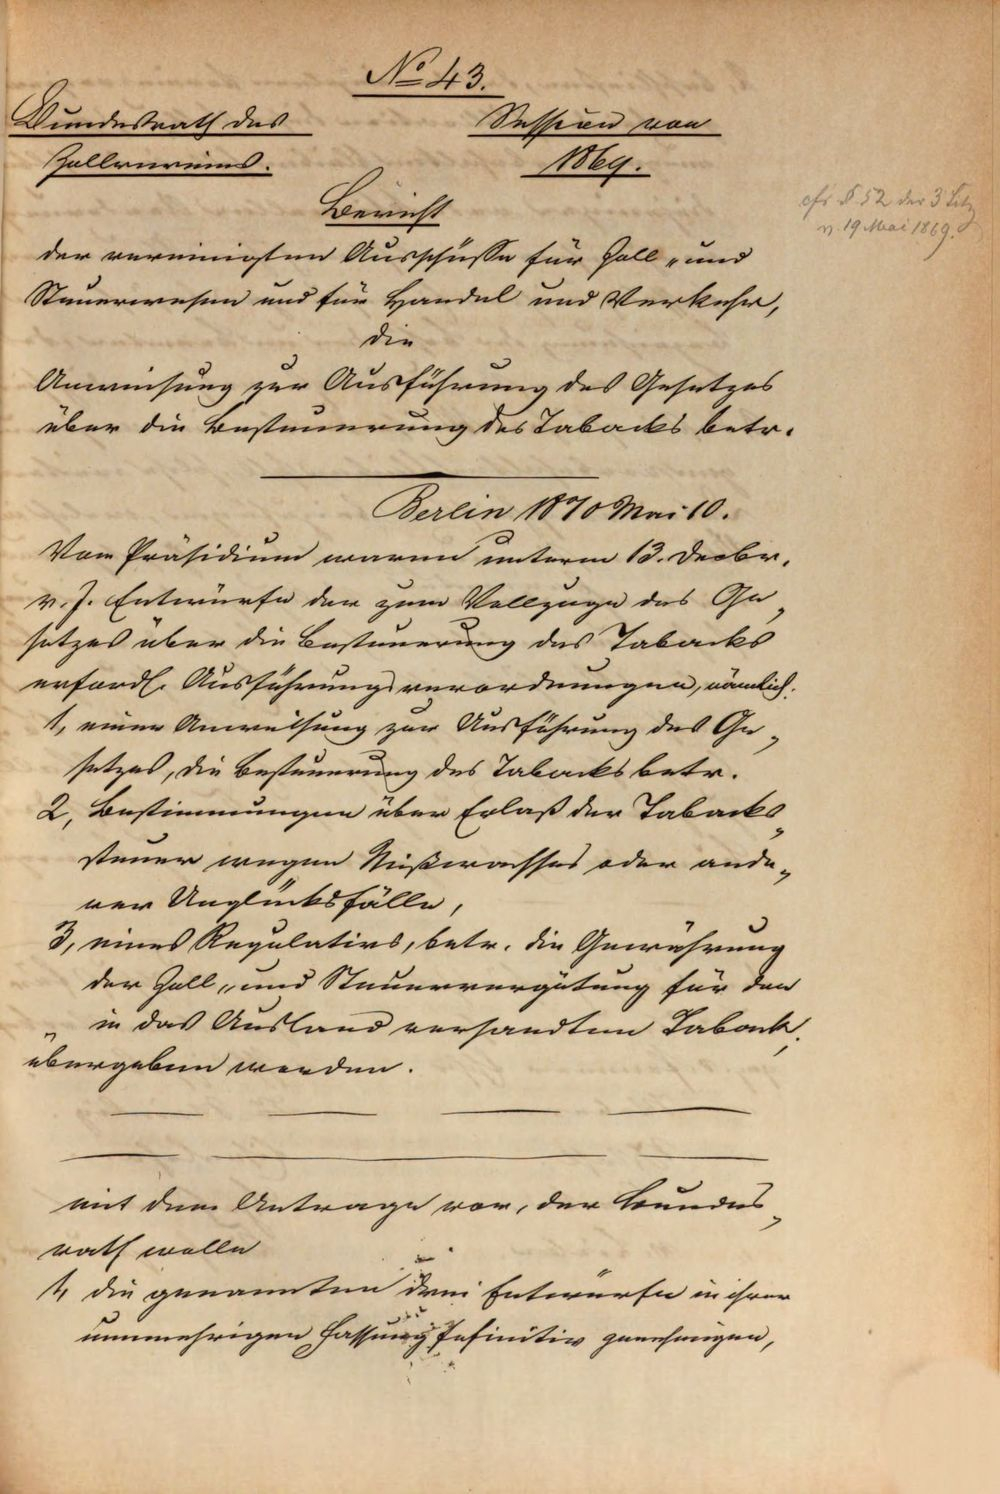 No 43.
Bundesrath des
Zollvereins.
Session von
1869.
cfr § 52 der 3 Sitz
v. 19 Mai 1869.
Bericht
der vereinigten Ausschüsse für Zoll- und
Steuerwesen und für Handel und Verkehr,
die
Anweisung zur Ausführung des Gesetzes
über die Besteuerung des Tabacks betr.
Berlin 1870 Mai 10.
Vom Präsidium waren unterm 13. Decbr.
v. J. Entwürfe der zum Vollzuge des Ge-
setzes über die Besteuerung des Tabacks
erfordl. Ausführungsverordnungen, nämlich:
1, einer Anweisung zur Ausführung des Ge-
setzes, die Besteuerung des Tabacks betr.
2, Bestimmungen über Erlaß der Tabacks-
steuer wegen Mißwachses oder ande-
rer Unglücksfälle,
3, eines Regulativs, betr. die Gewährung
der Zoll- und Steuervergütung für den
in das Ausland versandten Taback,
übergeben worden.
mit dem Antrage vor, der Bundes-
rath wolle
1, die genannten drei Entwürfe in ihrer
nunmehrigen Fassung definitiv genehmigen,